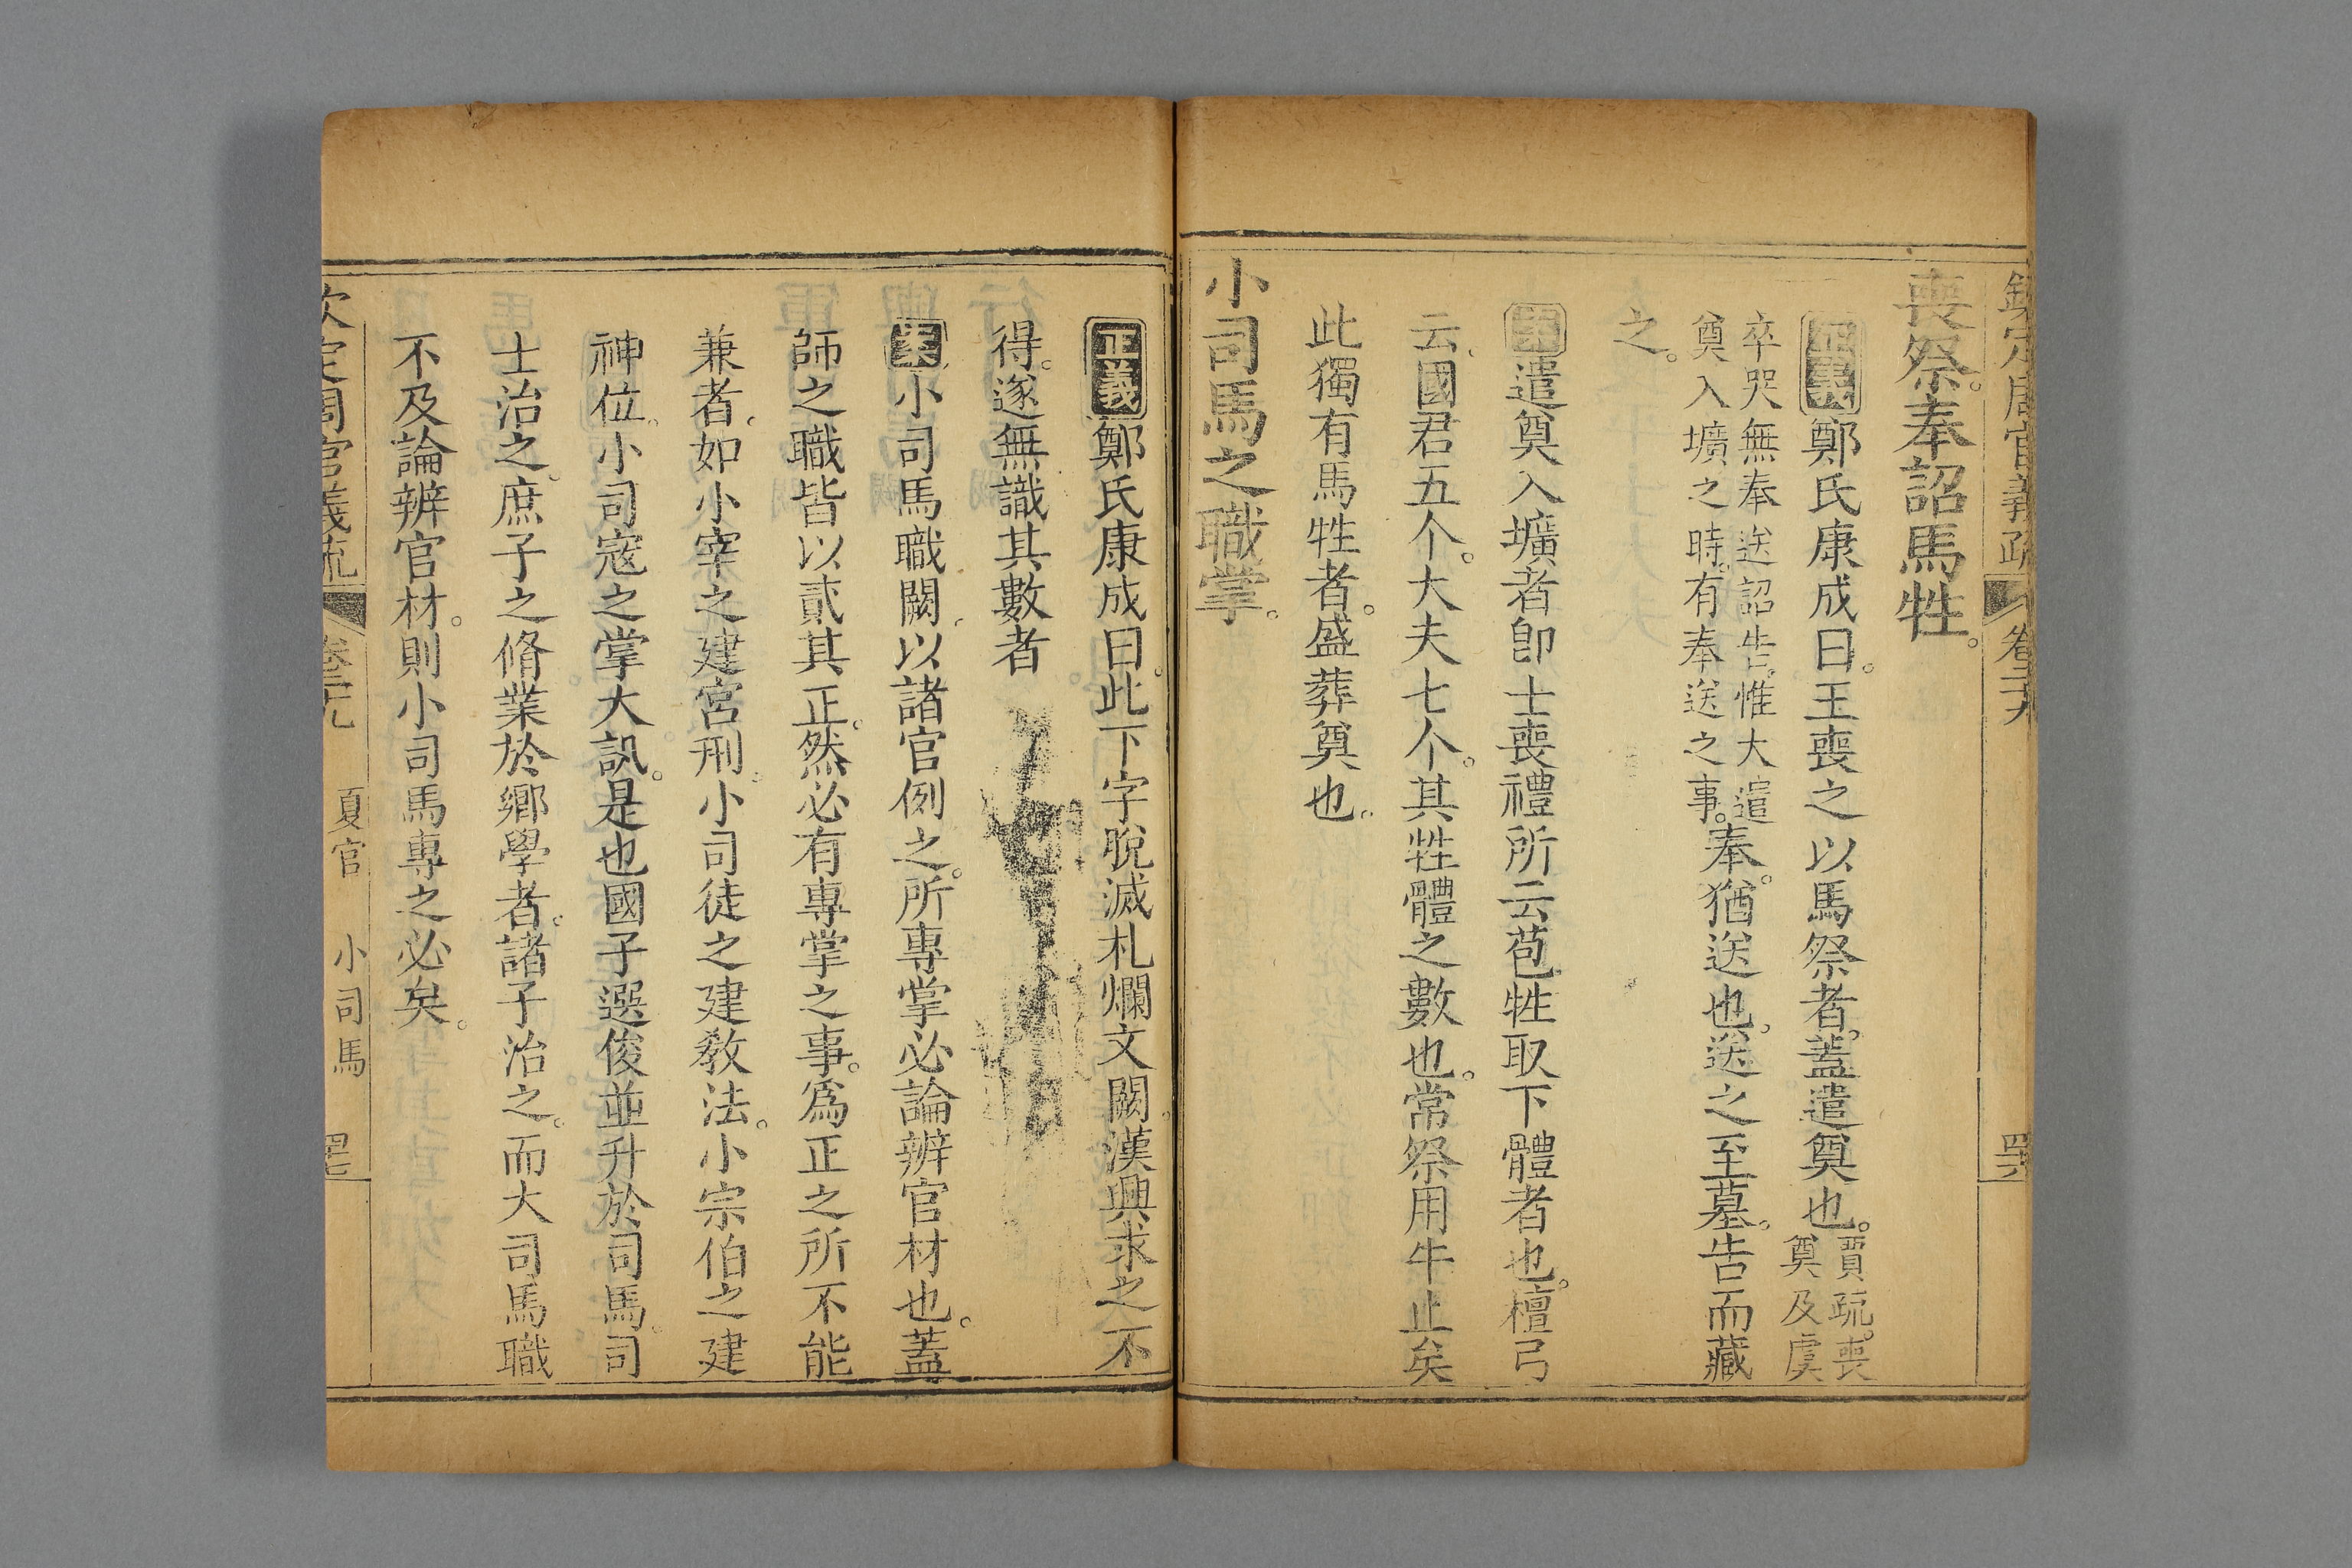 欽定周官義疏 卷二十九 四六
喪祭。奉詔馬牲。
正義鄭氏康成曰。王喪之以馬祭者。蓋遣奠也。賈疏。喪奠及虞
卒哭無奉送詔告。惟大遣奠入壙之時。有奉送之事。奉猶送也。送之至墓。告而藏
之。
案遣奠入壙者卽士喪禮所云苞牲取下體者也。檀弓
云、國君五个。大夫七个。其牲體之數也。常祭用牛止矣
此獨有馬牲者。盛葬奠也。
小司馬之職掌。
正義鄭氏康成曰。此下字脫滅札爛文闕。漢興求之不
得。遂無識其數者
案小司馬職闕。以諸官例之。所專掌必論辨官材也。蓋
師之職皆以貳其正。然必有專掌之事。爲正之所不能
兼者。如小宰之建宮刑。小司徒之建敎法。小宗伯之建
神位。小司寇之掌大訊。是也國子選俊並升於司馬。司
士治之。庶子之脩業於鄉學者。諸子治之。而大司馬職
不及論辨官材。則小司馬專之必矣。
欽定周官義疏 卷二十九 夏官 小司馬 四七